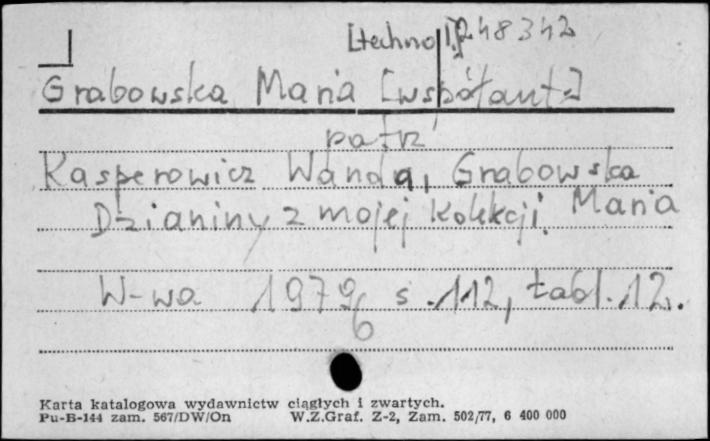 [techno] 248342
Grabowska Maria [współaut.]
patrz
Kasperowicz Wanda, Grabowska
Dzianiny z mojej kolekcji. Maria
W-wa 1979 s. 112, tabl. 12.
6
Karta katalogowa wydawnictw ciągłych i zwartych.
Pu-B-144 zam. 567/DW/On W.Z.Graf. Z-2, Zam. 502/77, 6 400 000